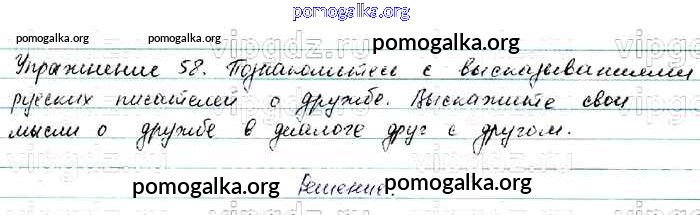 pomogalka.org
pomogalka.org pomogalka.org pomogalka.org pomogalka.org
Упражнение 58. Познакомьтесь с высказываниями
русских писателей о дружбе. Выскажите свои
мысли о дружбе в диалоге друг с другом.
pomogalka.org Решение. pomogalka.org